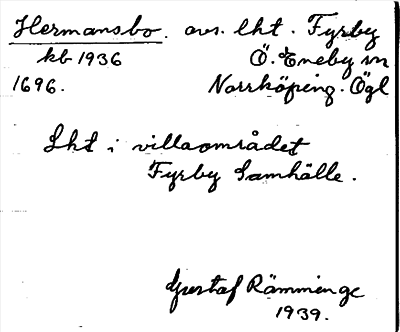 Hermansbo. avs. lht. Fyrby
kb 1936 Ö. Eneby sn
1696. Norrköping. Ögl
Lht i villaområdet
Fyrby Samhälle.
Gustaf Rämminge
1939.